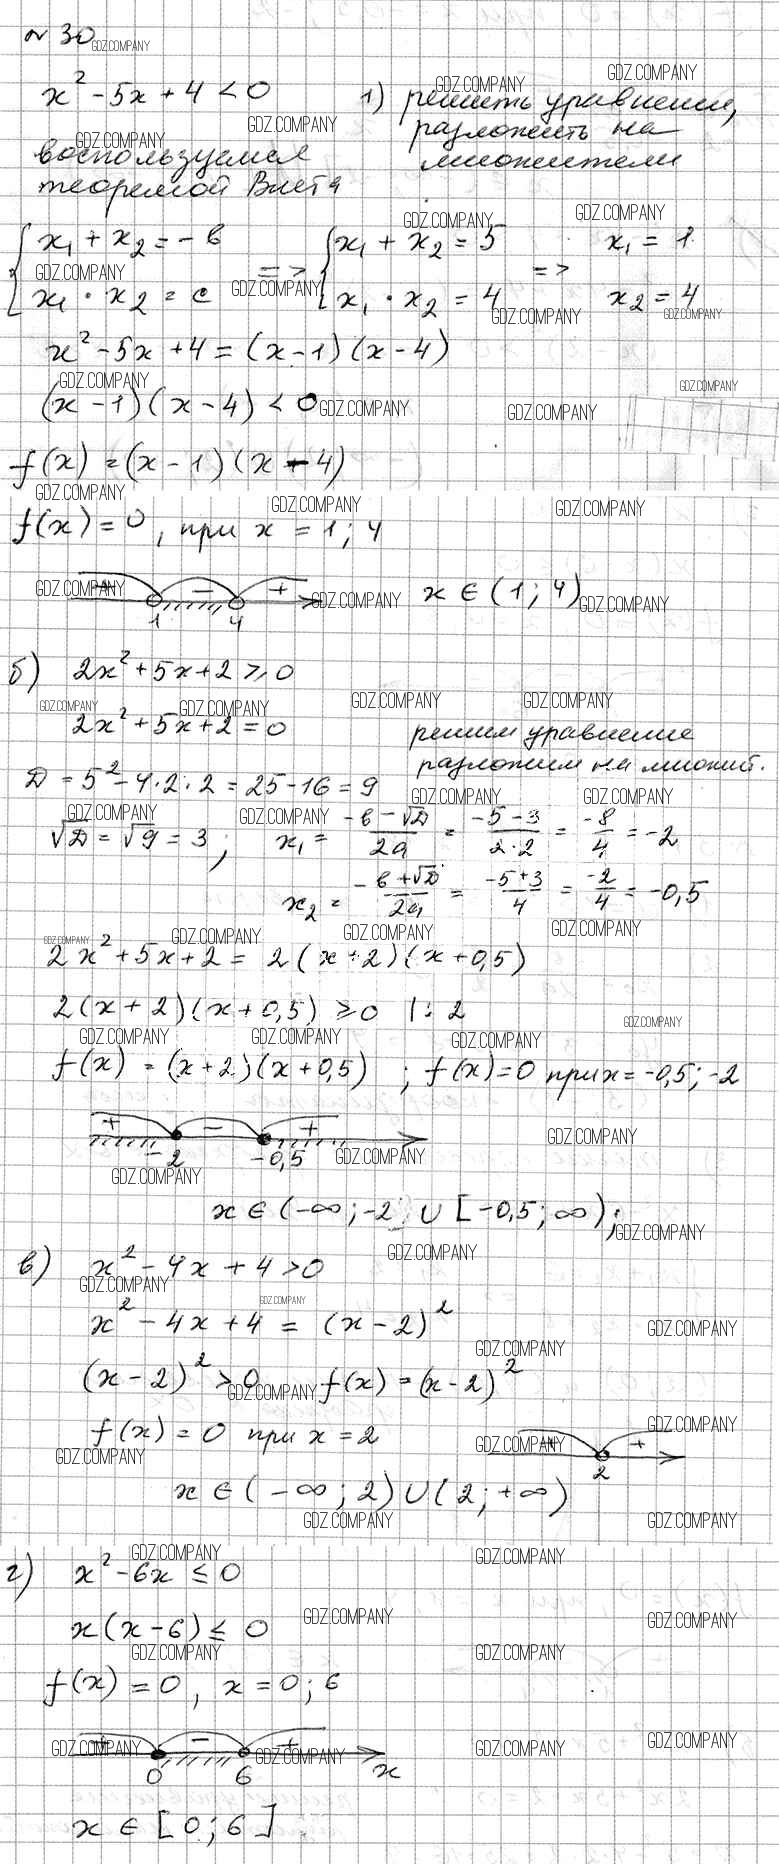 № 30
x² - 5x + 4 < 0 1) решить уравнение,
разложить на
воспользуемся множители
теоремой Виета
{ x₁ + x₂ = - в => { x₁ + x₂ = 5 => x₁ = 1
x₁ · x₂ = c x₁ · x₂ = 4 x₂ = 4
x² - 5x + 4 = (x - 1)(x - 4)
(x - 1)(x - 4) < 0
f(x) = (x - 1)(x - 4)
f(x) = 0, при x = 1; 4
+ - +
1 4 x ∈ (1; 4)
б) 2x² + 5x + 2 ≥ 0
2x² + 5x + 2 = 0 решим уравнение
разложим на множит.
D = 5² - 4·2·2 = 25 - 16 = 9
√D = √9 = 3; x₁ = (-в - √D)/2a = (-5 - 3)/(2·2) = -8/4 = -2
x₂ = (-в + √D)/2a = (-5 + 3)/4 = -2/4 = -0,5
2x² + 5x + 2 = 2(x + 2)(x + 0,5)
2(x + 2)(x + 0,5) ≥ 0 |: 2
f(x) = (x + 2)(x + 0,5) ; f(x) = 0 при x = -0,5; -2
+ - +
-2 -0,5
x ∈ (-∞; -2 ∪ [-0,5; ∞);
в) x² - 4x + 4 > 0
x² - 4x + 4 = (x - 2)²
(x - 2)² > 0 f(x) = (x - 2)²
f(x) = 0 при x = 2
+ +
2
x ∈ (-∞; 2) ∪ (2; +∞)
г) x² - 6x ≤ 0
x(x - 6) ≤ 0
f(x) = 0, x = 0; 6
+ - +
0 6 x
x ∈ [0; 6]
GDZ.COMPANY